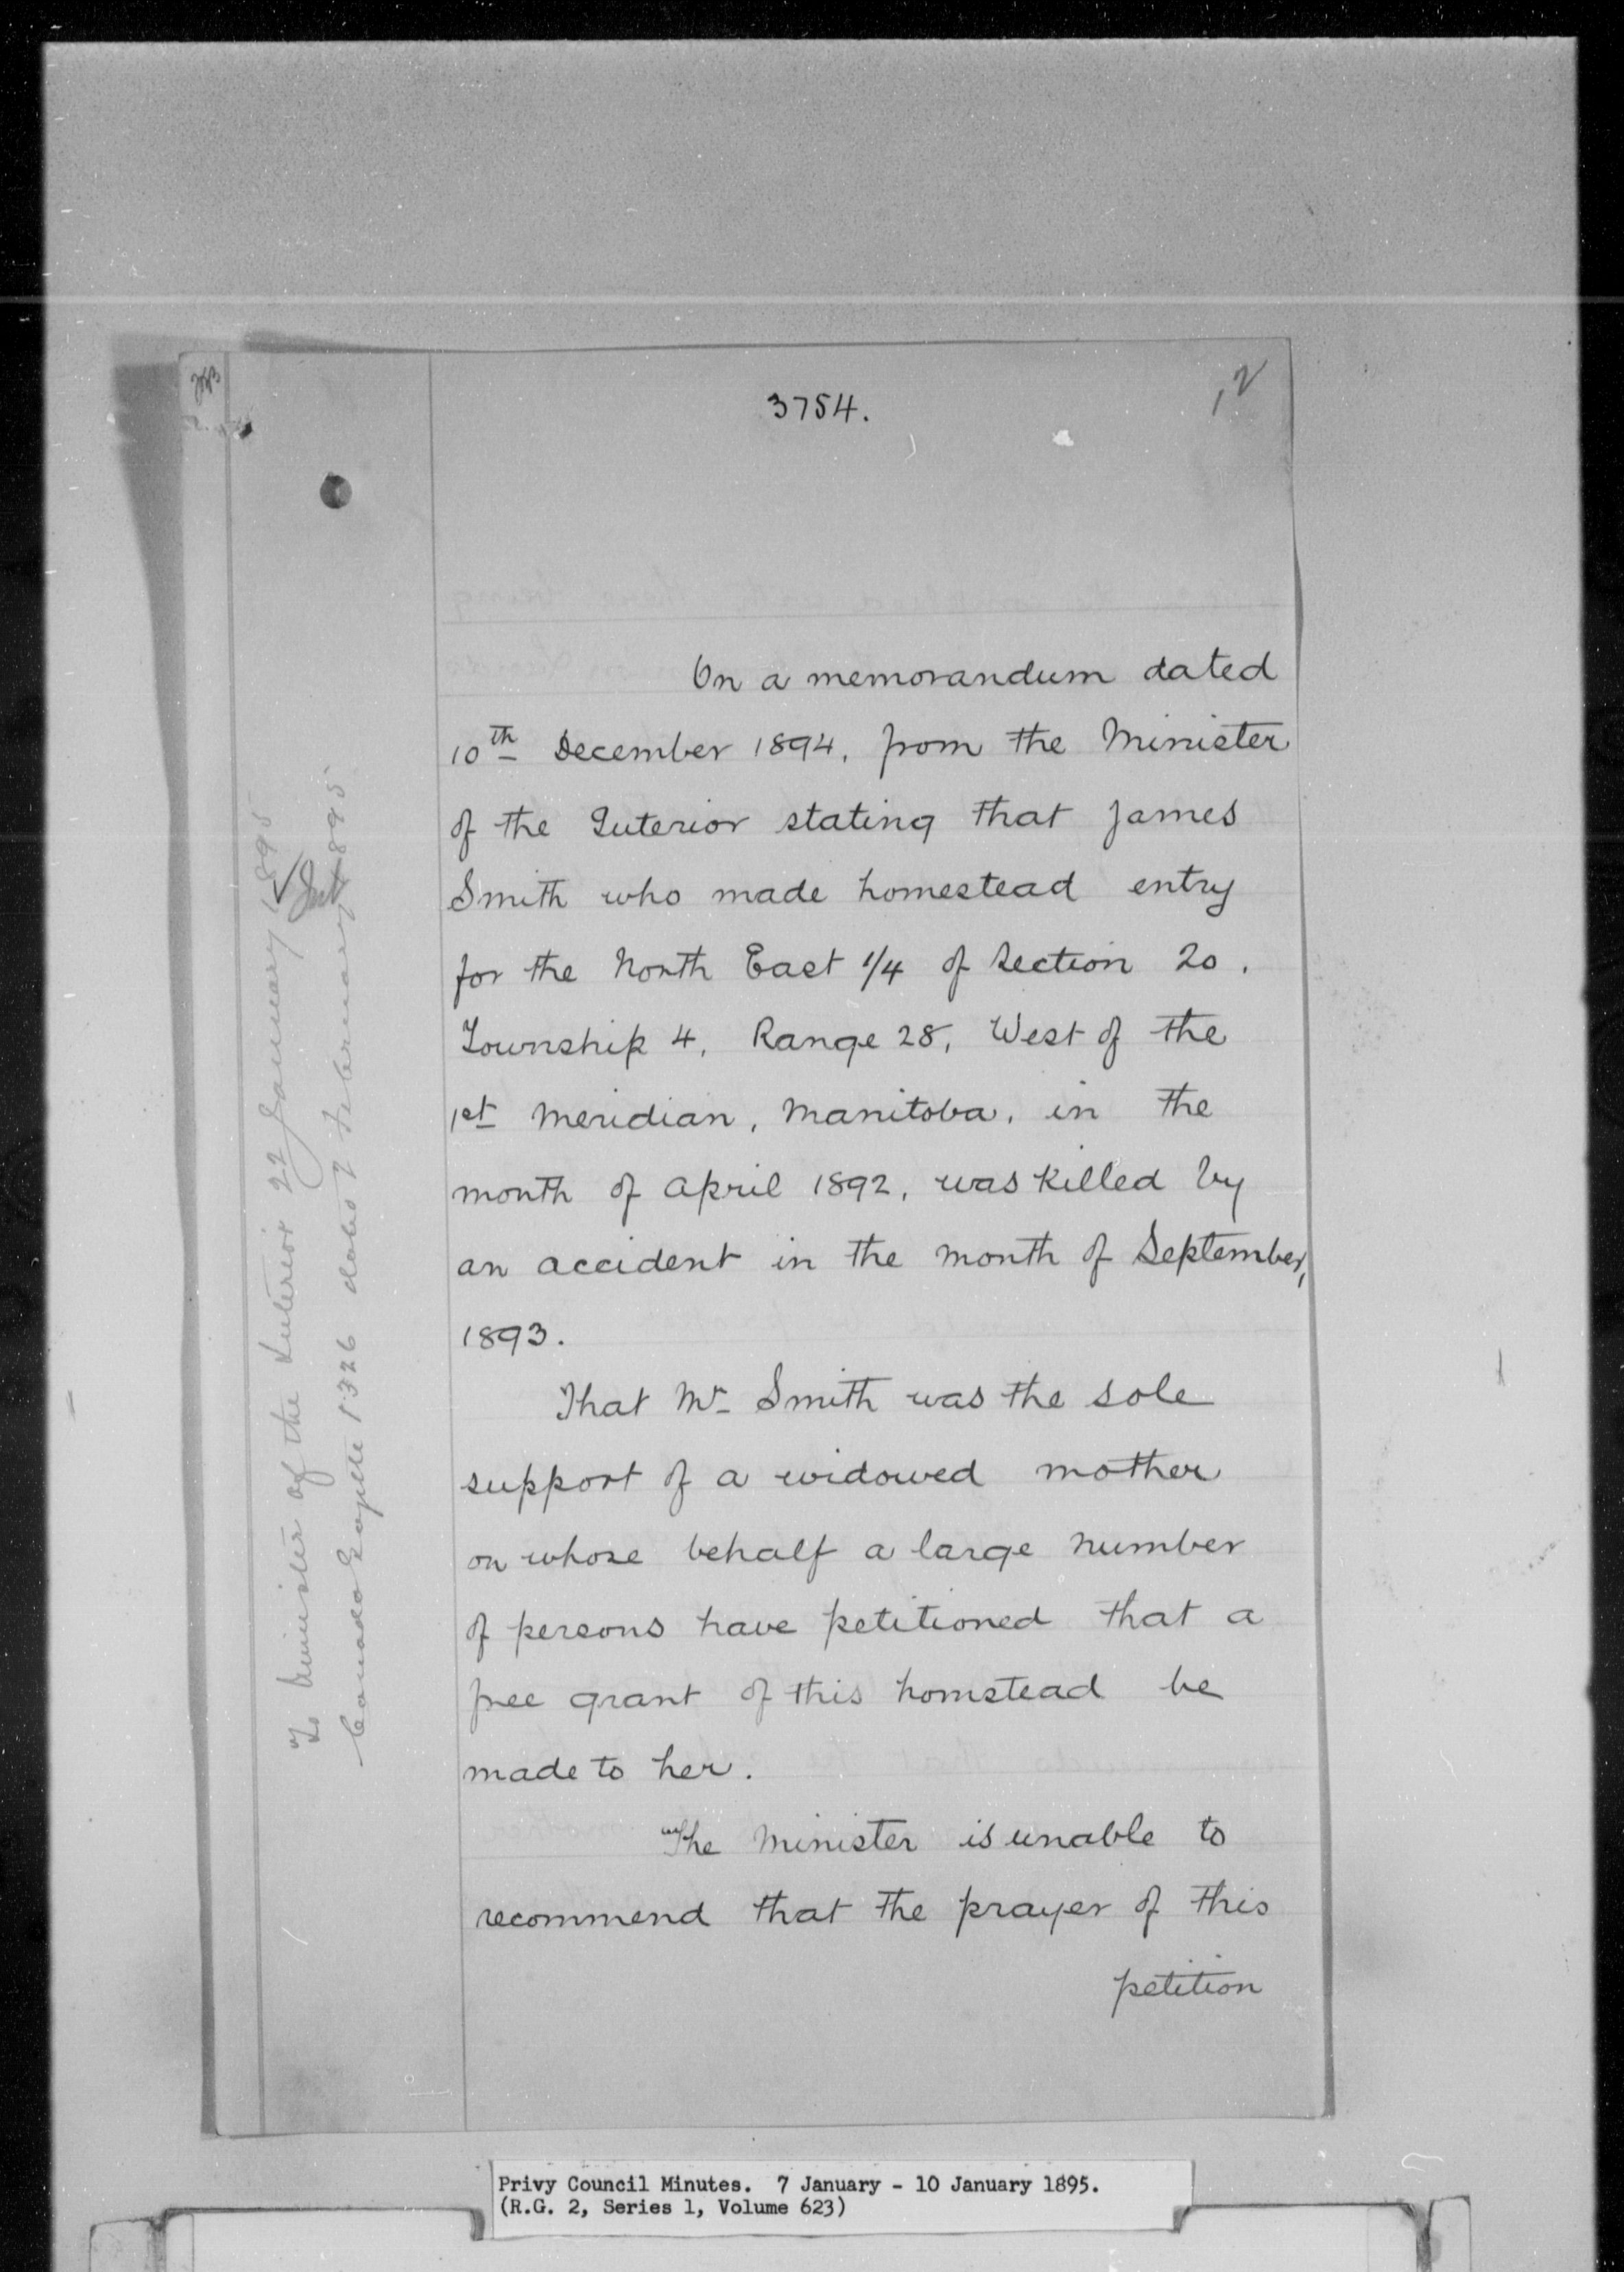 3754.
12
On a memorandum dated
10th December 1894, from the Minister
of the Interior stating that James
Smith who made homestead entry
for the North East 1/4 of Section 20,
Township 4, Range 28, West of the
1st Meridian, Manitoba, in the
month of April 1892, was killed by
an accident in the month of September,
1893.
That Mr Smith was the sole
support of a widowed mother
on whose behalf a large number
of persons have petitioned that a
free grant of this homstead be
made to her.
The Minister is unable to
recommend that the prayer of this
petition
To Minister of the Interior 22 January 1895
Canada Gazette 1326 dated 2 February 1895
Privy Council Minutes. 7 January - 10 January 1895.
(R.G. 2, Series 1, Volume 623)